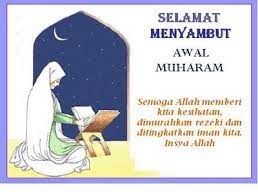 SELAMAT
MENYAMBUT
AWAL
MUHARAM
Semoga Allah memberi
kita kesihatan,
dimurahkan rezeki dan
ditingkatkan iman kita.
Insya Allah